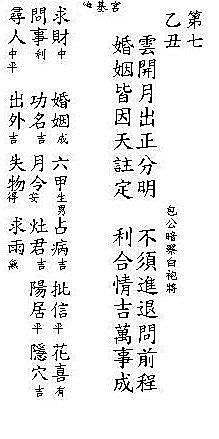 第七
乙丑
包公暗察白袍將
雲開月出正分明 不須進退問前程
婚姻皆因天註定 利合情吉萬事成
基宮
求財中 婚姻成 六甲生男 占病吉 批信平 花喜有
問事利 功名吉 月令安 灶君吉 陽居平 隱穴吉
尋人中平 出外吉 失物得 求雨無